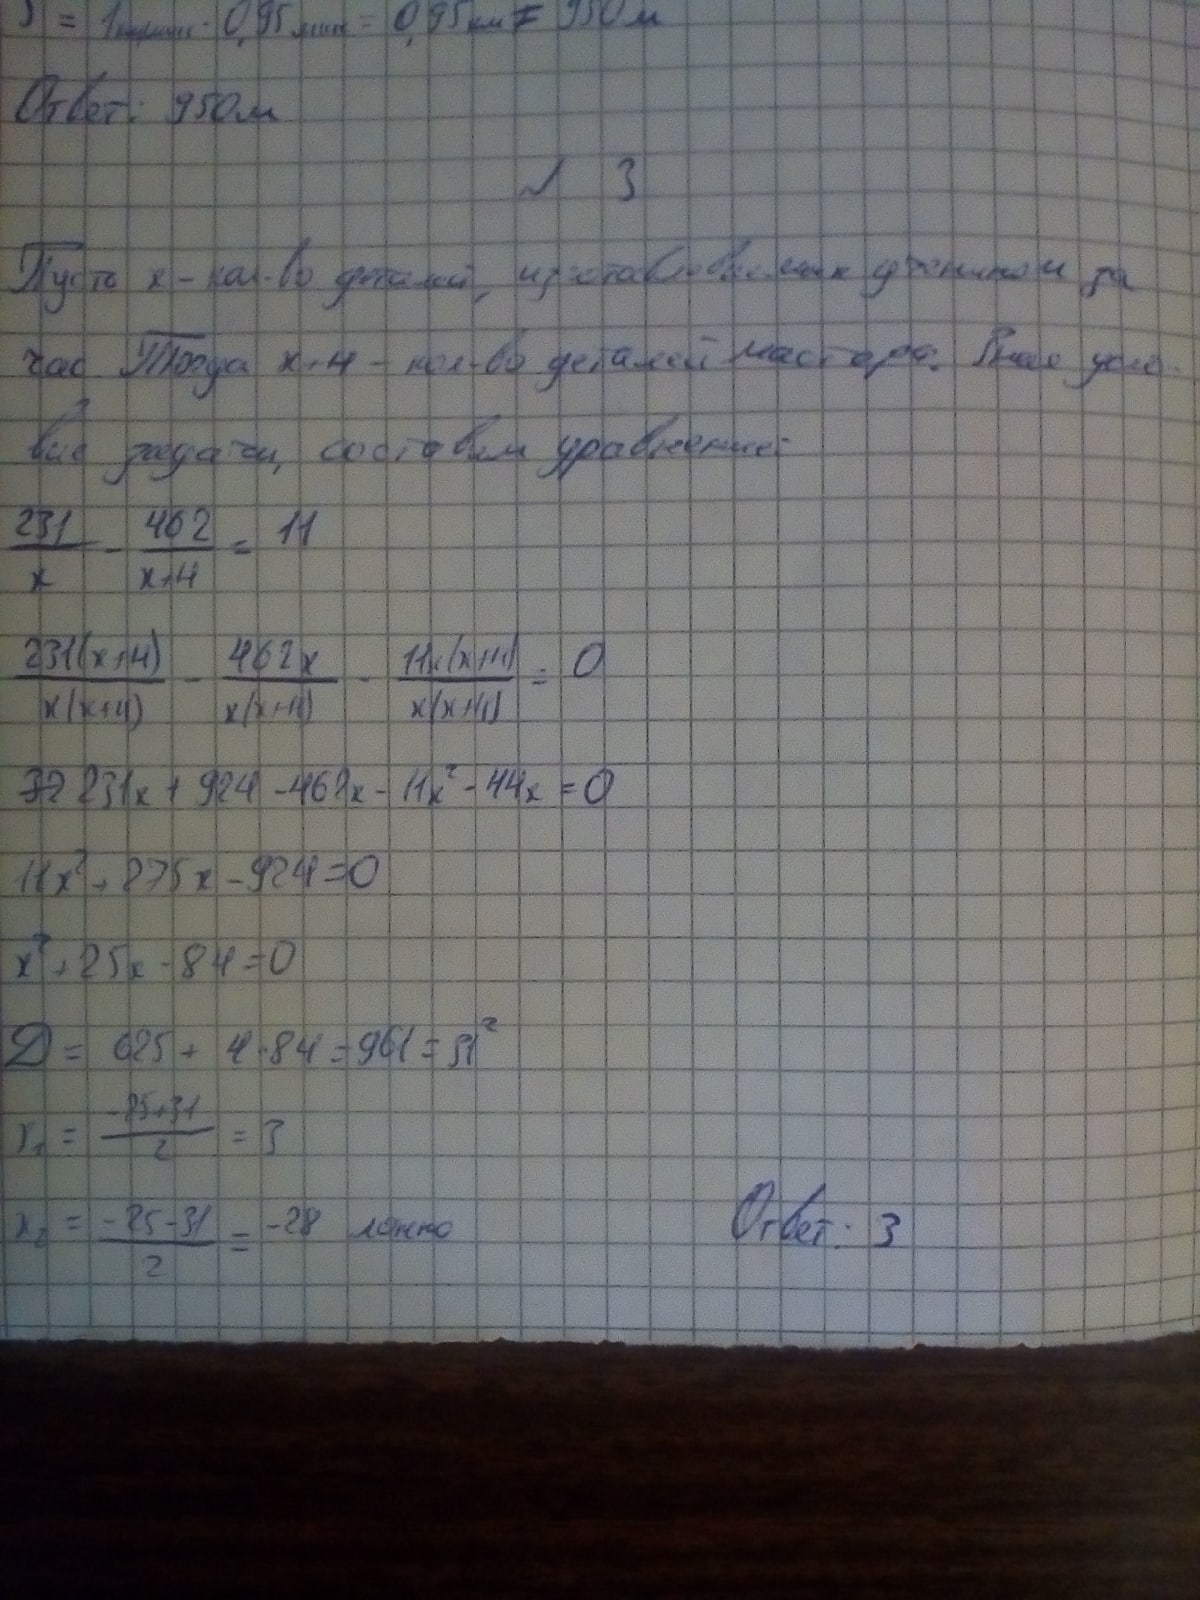 S = 1 км/мин · 0,95 мин = 0,95 км = 950 м
Ответ: 950 м
№ 3
Пусть х - кол-во деталей, изготавливаемых учеником за
час Тогда х+4 - кол-во деталей мастера. Зная усло-
вие задачи, составим уравнение:
231/x - 462/(x+4) = 11
231(x+4)/x(x+4) - 462x/x(x+4) - 11x(x+4)/x(x+4) = 0
231x + 924 - 462x - 11x² - 44x = 0
11x² + 275x - 924 = 0
x² + 25x - 84 = 0
D = 625 + 4·84 = 961 = 31²
x₁ = (-25+31)/2 = 3
x₂ = (-25-31)/2 = -28 ложно
Ответ: 3